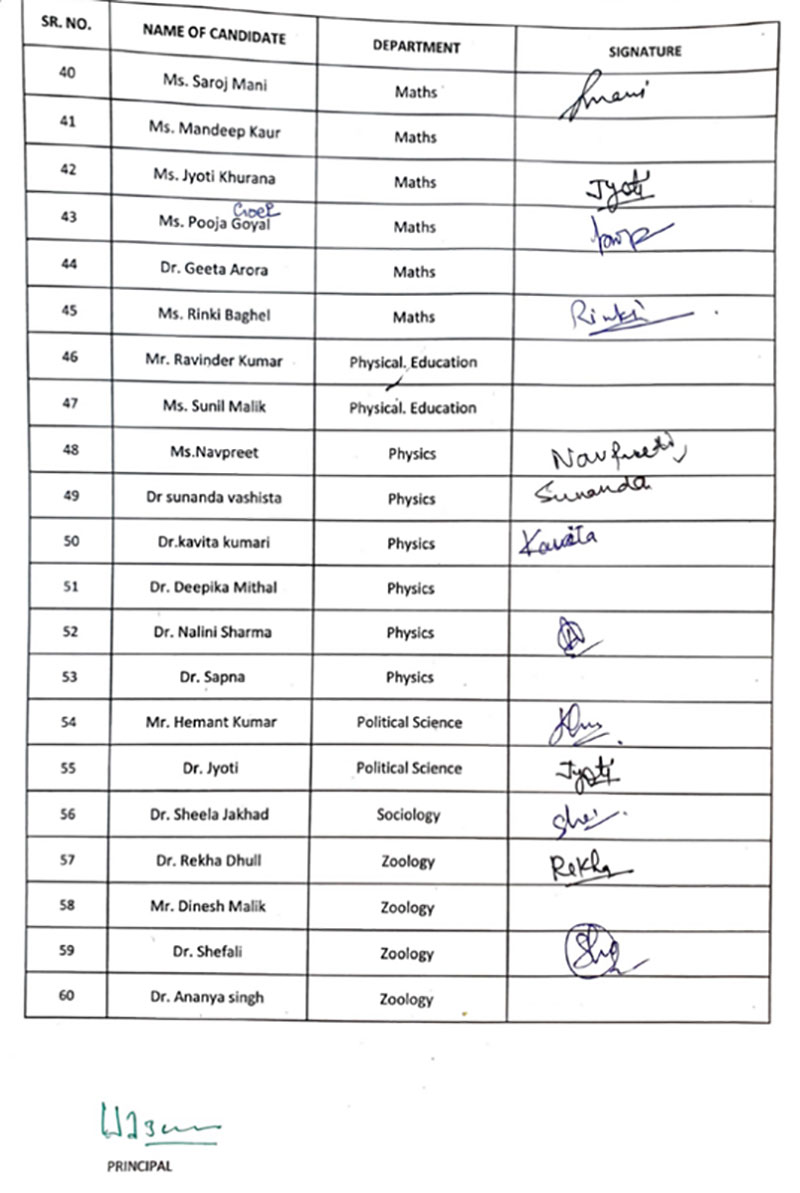 SR. NO. NAME OF CANDIDATE DEPARTMENT SIGNATURE
40 Ms. Saroj Mani Maths Smani
41 Ms. Mandeep Kaur Maths
42 Ms. Jyoti Khurana Maths Jyoti
Goel
43 Ms. Pooja Goyal Maths
44 Dr. Geeta Arora Maths
45 Ms. Rinki Baghel Maths Rinki
46 Mr. Ravinder Kumar Physical. Education
47 Ms. Sunil Malik Physical. Education
48 Ms.Navpreet Physics Navpreet
49 Dr sunanda vashista Physics Sunanda
50 Dr.kavita kumari Physics Kavita
51 Dr. Deepika Mithal Physics
52 Dr. Nalini Sharma Physics
53 Dr. Sapna Physics
54 Mr. Hemant Kumar Political Science
55 Dr. Jyoti Political Science Jyoti
56 Dr. Sheela Jakhad Sociology
57 Dr. Rekha Dhull Zoology Rekha
58 Mr. Dinesh Malik Zoology
59 Dr. Shefali Zoology
60 Dr. Ananya singh Zoology
PRINCIPAL